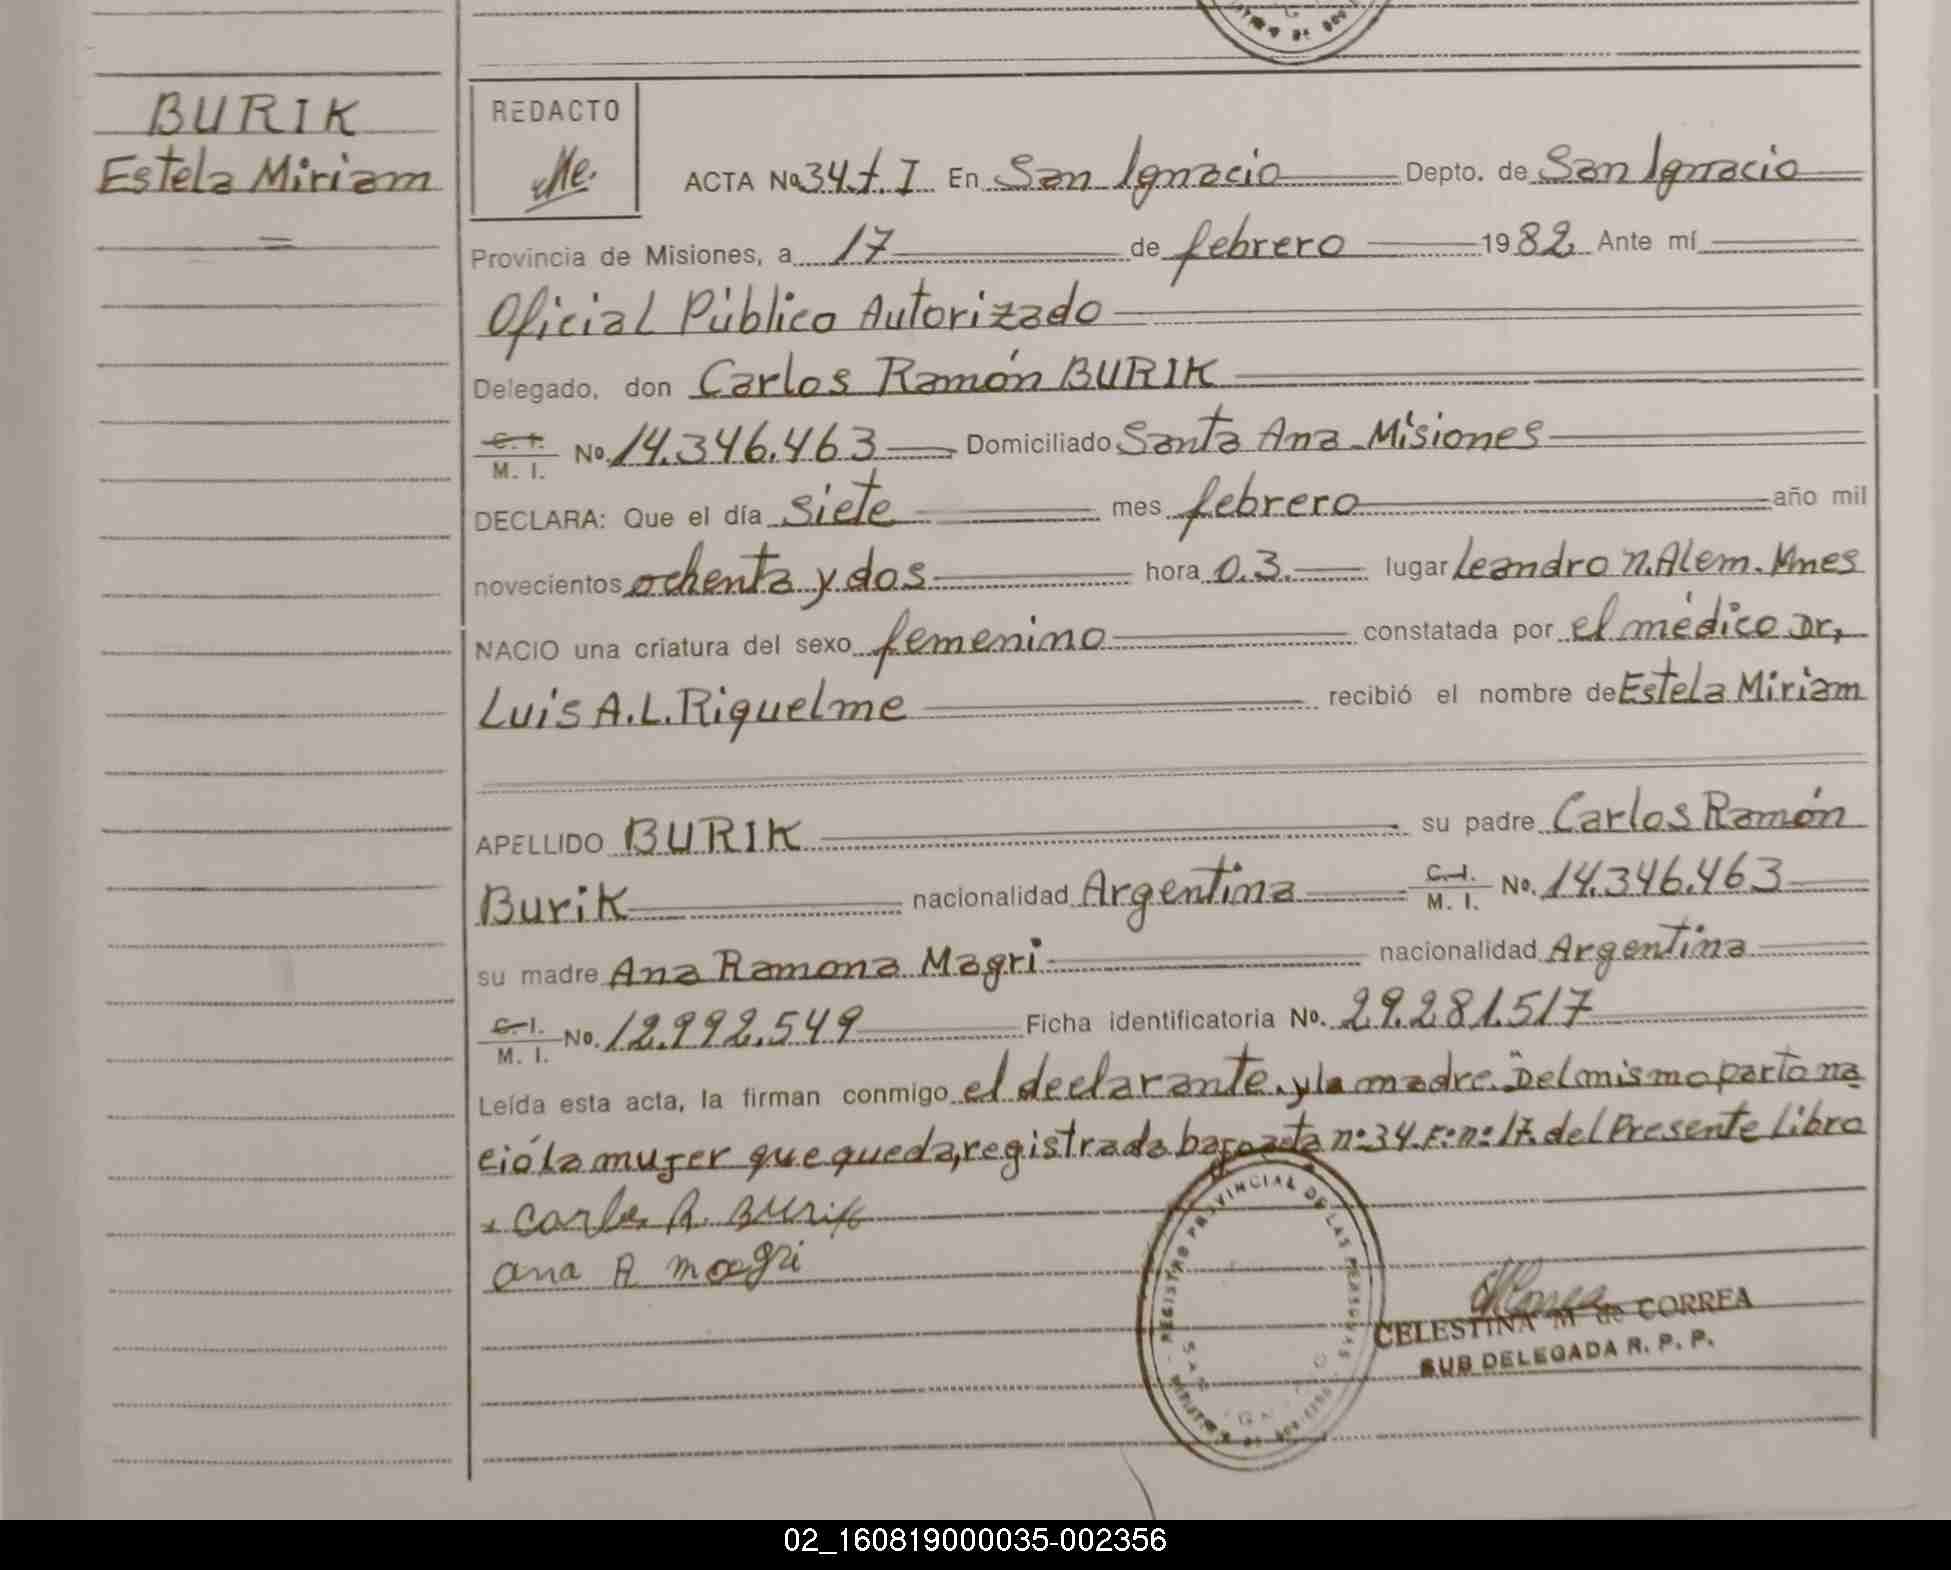 BURIK
Estela Miriam
REDACTO
ACTA No 34. t. I En San Ignacio Depto. de San Ignacio
Provincia de Misiones, a 17 de febrero 1982 Ante mí
Oficial Público Autorizado
Delegado, don Carlos Ramón BURIK
C. I.
M. I. No. 14.346.463 Domiciliado Santa Ana Misiones
DECLARA: Que el día siete mes febrero año mil
novecientos ochenta y dos hora 0.3. lugar Leandro N. Alem. Mnes
NACIO una criatura del sexo femenino constatada por el médico Dr,
Luis A. L. Riquelme recibió el nombre de Estela Miriam
APELLIDO BURIK su padre Carlos Ramón
Burik nacionalidad Argentina C. I. M. I. No. 14.346.463
su madre Ana Ramona Magri nacionalidad Argentina
C. I. M. I. No. 12.992.549 Ficha identificatoria No. 29.281.517
Leída esta acta, la firman conmigo el declarante. y la madre. Del mismo parto na
ció la mujer que queda, registrada bajo acta nº 34. Fº nº 17. del Presente Libro
Carlos R. Burik
ana R magri
REGISTRO PROVINCIAL DE LAS PERSONAS
CELESTINA M de CORREA
SUB DELEGADA R. P. P.
02_160819000035-002356